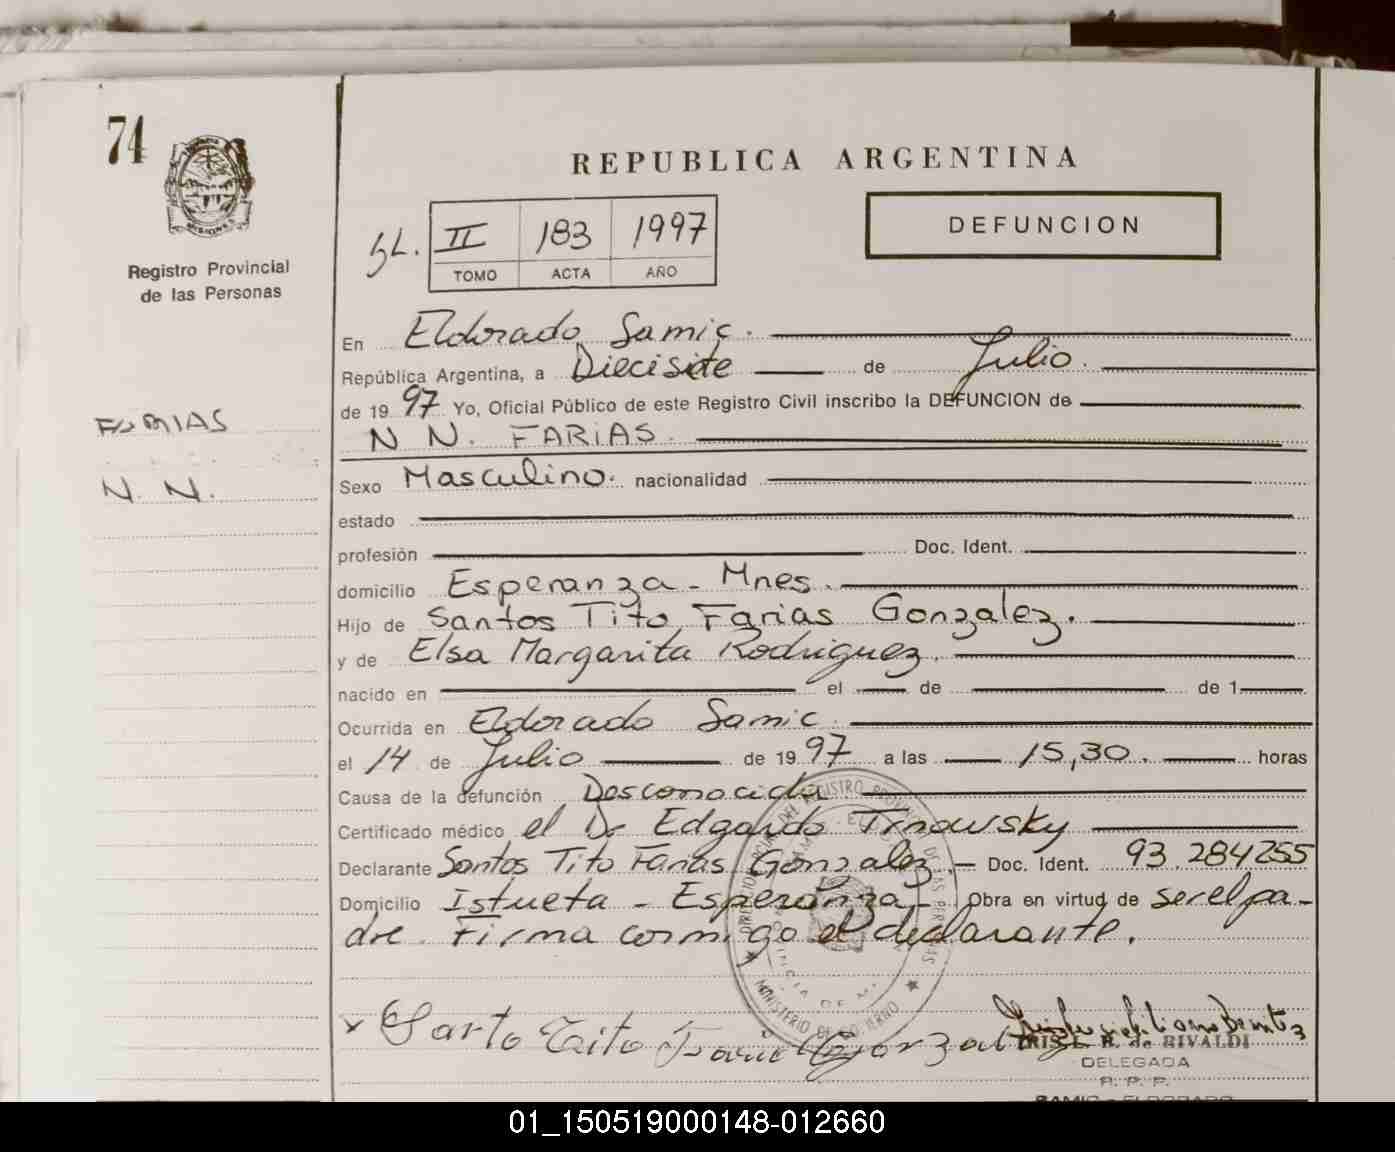 74
REPUBLICA ARGENTINA
DEFUNCION
SL. II 183 1997
TOMO ACTA AÑO
Registro Provincial
de las Personas
FARIAS
N. N.
En Eldorado Samic.
República Argentina, a Diecisiete de Julio.
de 1997 Yo, Oficial Público de este Registro Civil inscribo la DEFUNCION de
N N. FARIAS.
Sexo Masculino. nacionalidad
estado
profesión Doc. Ident.
domicilio Esperanza - Mnes.
Hijo de Santos Tito Farias Gonzalez.
y de Elsa Margarita Rodriguez.
nacido en el de de 1
Ocurrida en Eldorado Samic
el 14 de Julio de 1997 a las 15,30. horas
Causa de la defunción Desconocida
Certificado médico el Dr Edgardo Trnowsky
Declarante Santos Tito Farias Gonzalez. Doc. Ident. 93.284255
Domicilio Istueta - Esperanza - Obra en virtud de ser el pa-
dre. Firma conmigo el declarante.
MINISTERIO DE GOBIERNO
x Santo Tito Faria Gonzalez
IRIS L. B. de RIVALDI
DELEGADA
R. P. P.
SAMIC - ELDORADO
01_150519000148-012660